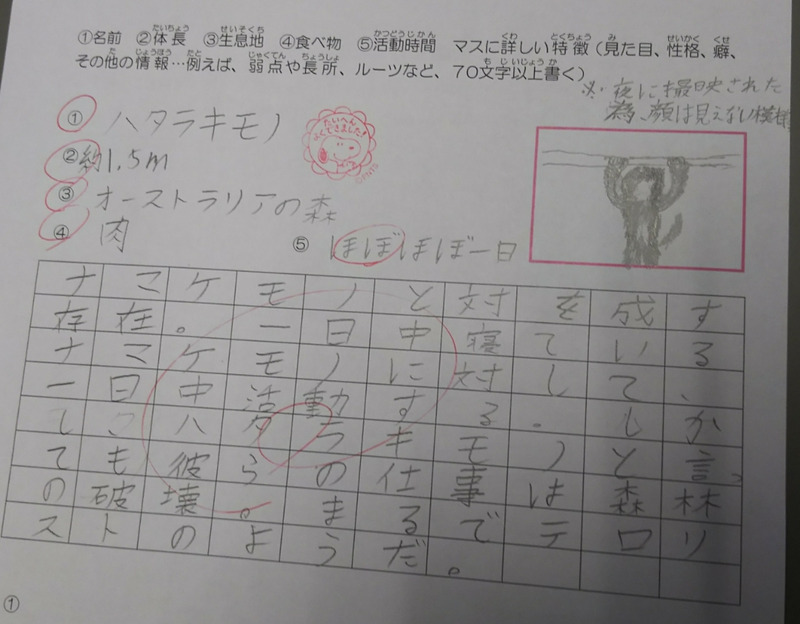 ①名前 ②体長 ③生息地 ④食べ物 ⑤活動時間 マスに詳しい特徴(見た目、性格、癖、
その他の情報…例えば、弱点や長所、ルーツなど、70文字以上書く)
※夜に撮映された
為、顔は見えない模様
① ハタラキモノ
たいへん
よくできました!
②約1.5m
③ オーストラリアの森
④ 肉
⑤ ほぼほぼ一日
ナマケモノと対を成す
存在。一日中寝ている
ナマケモノに対して、
一日中活動する。しか
しこハタラキモノと言っ
ても彼らの仕事は森林
の破壊。まるでテロリ
ストのようだ。
①